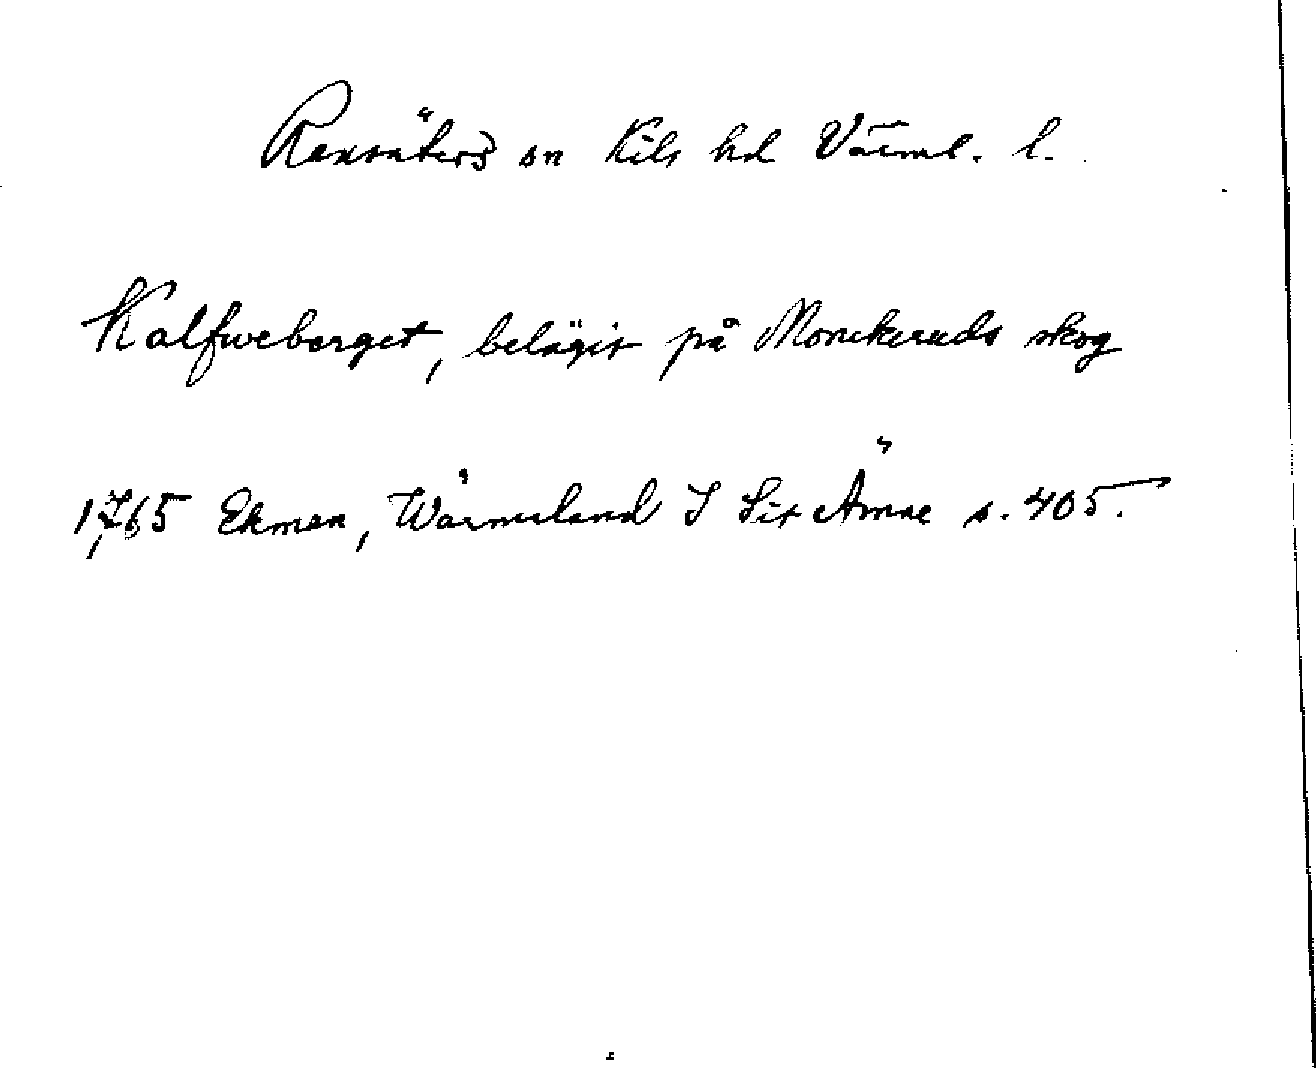 Ransäters sn Kils hd Värml. l.
Kalfweberget, belägit på Monckeruds skog
1765 Ekman, Wärmeland I Sit Ämne s. 405.